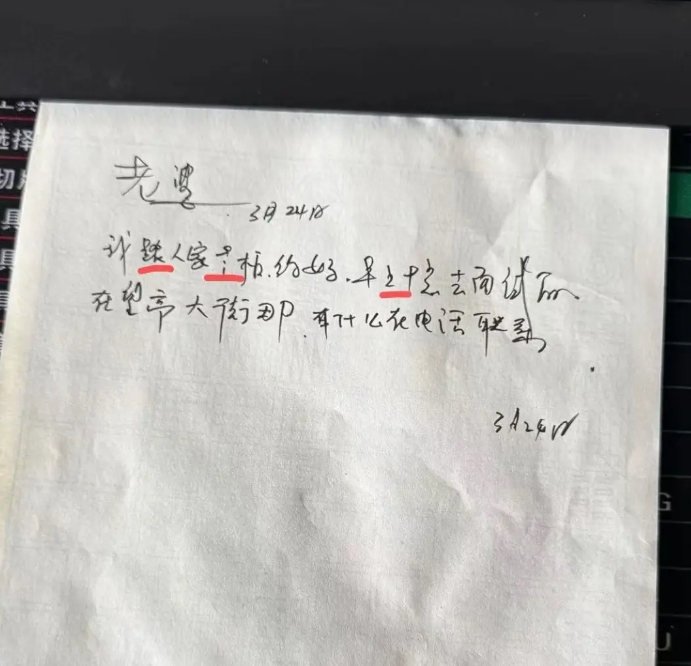 工具
选择
切片
具
具
具
具
老婆
3月24日
我跟人家老板.约好.早上十点去面试
在望亭大街那.有什么在电话联系.
3月24日
G
U